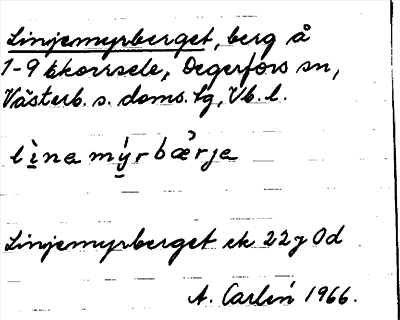 Linjemyrberget, berg å
1-9 Ekorrsele, Degerfors sn,
Västerb. s. doms. tg, Vb. l.
lìna mý̱rbæ̀rja
Linjemyrberget ek 22 j 0 d
A. Carlén 1966.